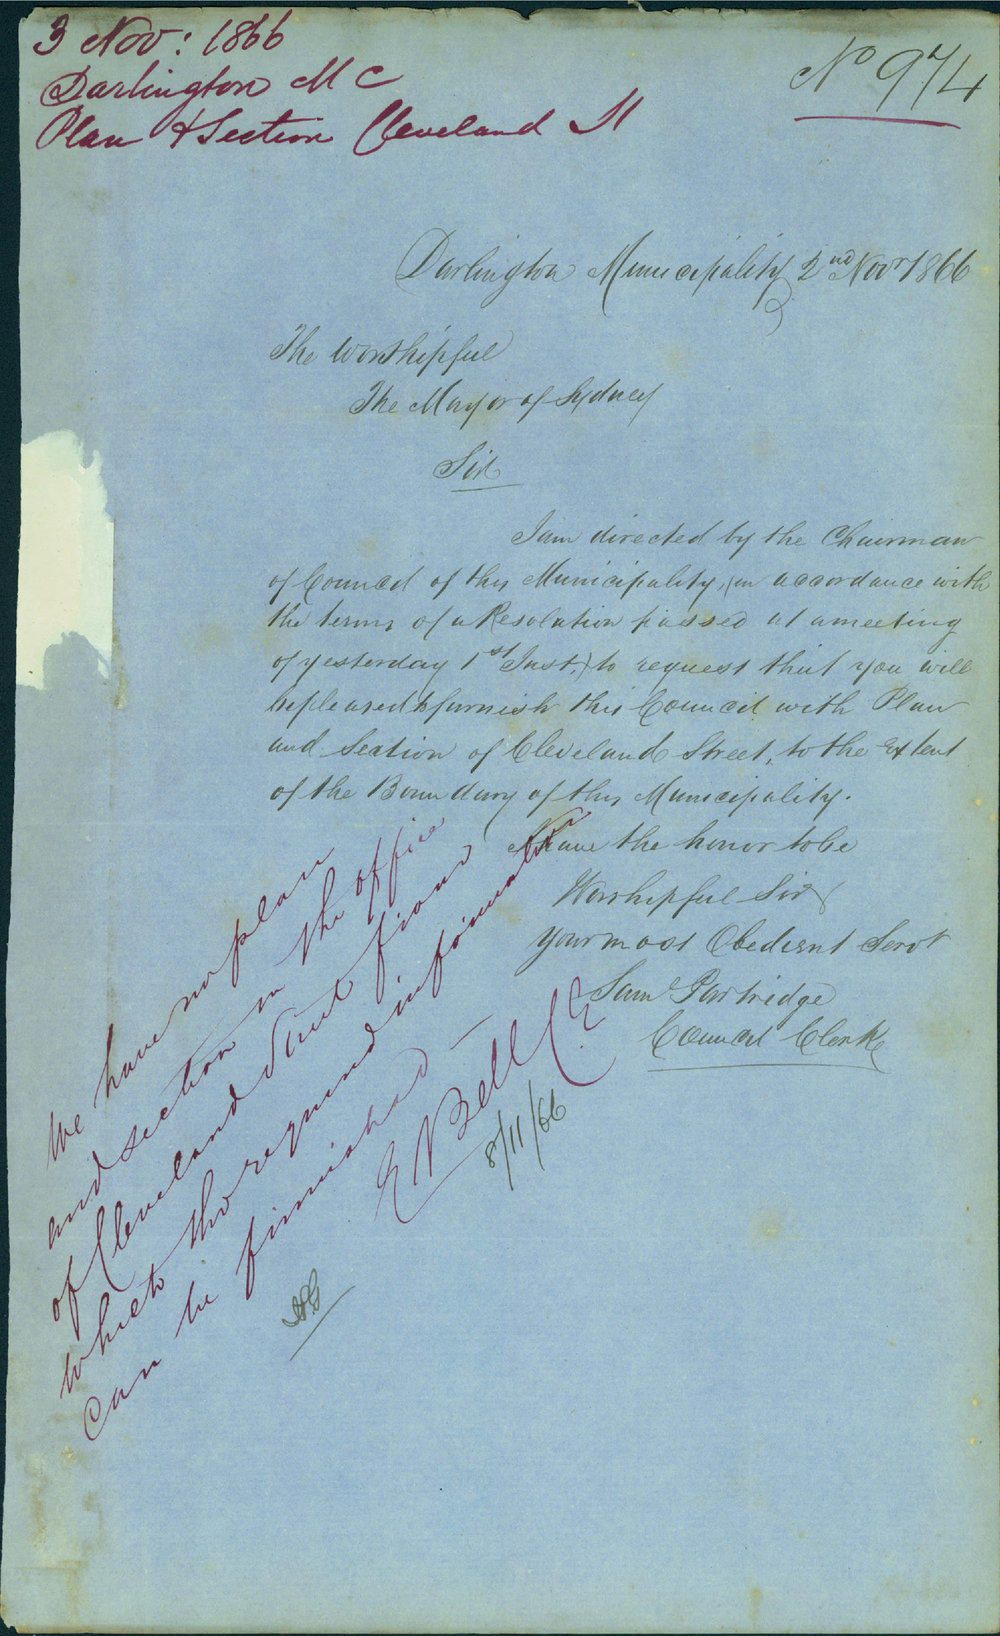 3 Nov: 1866
Darlington M C
Plan & Section Cleveland St
No 974
Darlington Municipality 2nd Novr 1866
The Worshipful
The Mayor of Sydney
Sir
I am directed by the Chairman
of Council of this Municipality, (in accordance with
the terms of a Resolution passed at a meeting
of yesterday 1st Inst,) to request that you will
be pleased to furnish this Council with Plan
and Section of Cleveland Street, to the Extent
of the Boundary of this Municipality.
I have the honor to be
Worshipful Sir
Your most Obedient Servt
Saml Partridge
Council Clerk
We have no plan
and section in the office
of Cleveland Street from
which the required information
can be furnished —
E Bell C.E
8/11/66